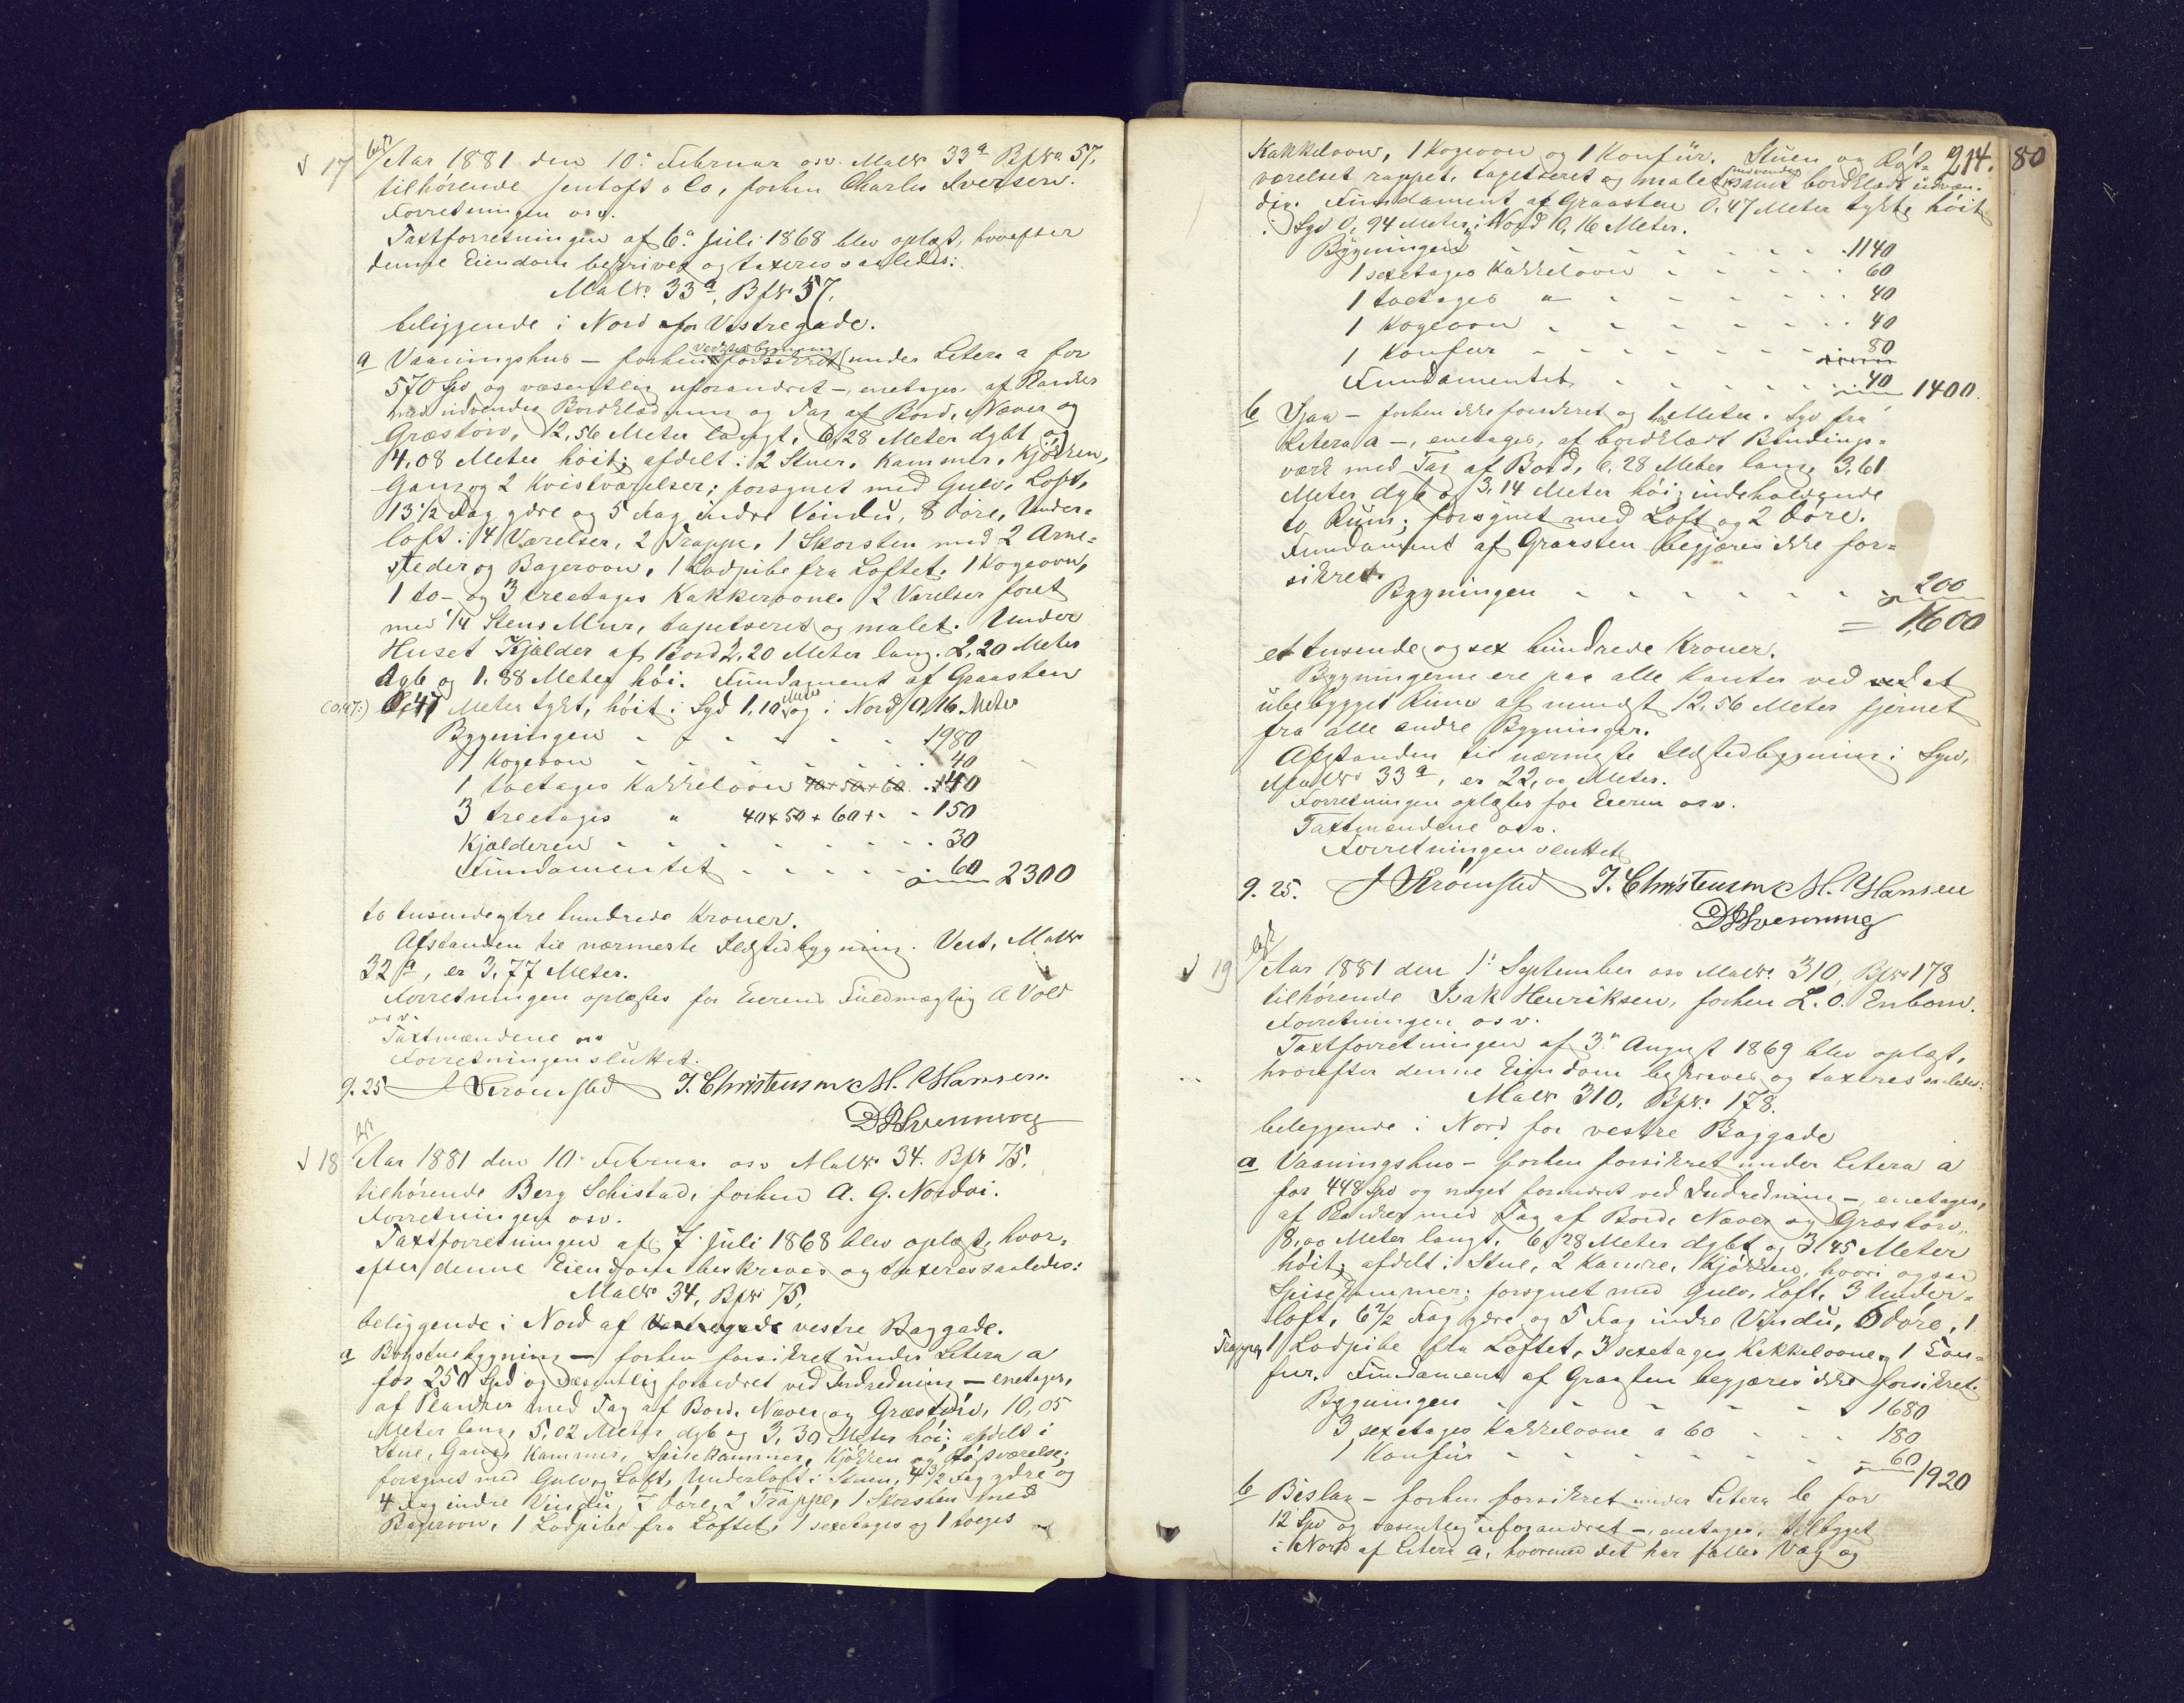 17 Aar 1881 den 10. Februar osv. MatNo 33a BfNo 57,
tilhørende Jentoft & Co, forhen Charles Iversen.
Forretningen osv.
Taxtforretningen af 6. Juli 1868 blev oplæst, hvorefter
denne Eiendom beskrives og taxeres saaledes:
MatNo 33a, BfNo 57,
beliggende i Nord for Vestregade.
a Vaaningshus – forhen forsikret under Litera a for
570 Spd og væsentlig uforandret –, enetages, af Planker
med udvendig Bordklædning og Tag af Bord, Næver og
Græstorv, 12,56 Meter langt, 6,28 Meter dybt og
4,08 Meter høit; afdelt i 2 Stuer, Kammer, Kjøkken,
Gang og 2 Kvistværelser; forsynet med Gulv, Loft,
13 1/2 Fag ydre og 5 Fag indre Vindu, 8 Døre, Under-
loft i 4 Værelser, 2 Trappe, 1 Skorsten med 2 Arne-
steder og Bagerovn, 1 Lodpibe fra Loftet, 1 Kogeovn,
1 to- og 3 treetages Kakkelovne. 2 Værelser foret
med 1/4 Stens Mur, tapetseret og malet. Under
Huset Kjælder af Bord 2,20 Meter lang, 2,20 Meter
dyb og 1,88 Meter høi. Fundament af Graasten
(0,47:) 0,47 Meter tykt, høit i Syd 1,10 Meter og i Nord 0,16 Meter
Bygningen - - - - - 1980
1 Kogeovn - - - - - 40
1 toetages Kakkelovn 40+50+60 - 40
3 treetages " 40+50+60+ - - 150
Kjælderen - - - - - 30
Fundamentet - - - - - 60 2300
to tusende tre hundrede Kroner.
Afstanden til nærmeste Ildstedbygning i Vest, MatNo
32a, er 3,77 Meter.
Forretningen oplæstes for Eierens Fuldmægtig A Vold
osv.
Taxtmændene osv
Forretningen sluttet.
9.25 J Strømsted J. Christensen M. Hansen
18 Aar 1881 den 10. Februar osv MatNo 34. BfNo 75,
tilhørende Berg Schistad, forhen A. G. Nordvi.
Forretningen osv.
Taxtforretningen af 7. Juli 1868 blev oplæst, hvor-
efter denne Eiendom beskrives og taxeres saaledes:
MatNo 34, BfNo 75,
beliggende i Nord af Vestregade vestre Baggade.
a Bygning – forhen forsikret under Litera a
for 250 Spd og væsentlig forandret ved Indredning – enetages,
af Planker med Tag af Bord, Næver og Græstorv, 10,05
Meter lang, 5,02 Meter dyb og 3,30 Meter høi; afdelt i
Stue, Gang, Kammer, Spisekammer, Kjøkken og Røgtværelse;
forsynet med Gulv og Loft, Underloft i Stuen, 4 3/2 Fag ydre og
4 Fag indre Vindu, 7 Døre, 2 Trappe, 1 Skorsten med
Bagerovn, 1 Lodpibe fra Loftet, 1 sexetages og 1 toetages
Kakkelovn, 1 Kogeovn og 1 Konfur. Stuen og Røgt- 214. 80
værelset rappet, tapetseret og malet indvendig samt bordklædt udven-
dig. Fundament af Graasten 0,47 Meter tykt, høit
i Syd 0,94 Meter, i Nord 0,16 Meter.
Bygningen - - - - - 1140
1 sexetages Kakkelovn - - - - - 60
1 toetages " - - - - - 40
1 Kogeovn - - - - - 40
1 Konfur - - - - - 80
Fundamentet - - - - - 40 1400.
b Sjaa – forhen ikke forsikret og 1 Meter i Syd fra
Litera a –, enetages, af bordklædt Bindings-
værk med Tag af Bord, 6,28 Meter lang, 3,61
Meter dyb og 3,14 Meter høi; indeholdende
to Rum; forsynet med Loft og 2 Døre.
Fundament af Graasten begjæres ikke for-
sikret.
Bygningen - - - - - 200
= 1,600
et tusende og sex hundrede Kroner.
Bygningerne ere paa alle Kanter ved et
ubebygget Rum af mindst 12,56 Meter fjernet
fra alle andre Bygninger.
Afstanden til nærmeste Ildstedbygning i Syd,
MatNo 33a, er 22,00 Meter.
Forretningen oplæstes for Eieren osv.
Taxtmændene osv.
Forretningen sluttet
9.25. J Strømsted J. Christensen M. Hansen
19 Aar 1881 den 1. September osv MatNo 310, BfNo 178
tilhørende Isak Henriksen, forhen L. O. Enbom.
Forretningen osv.
Taxtforretningen af 3. August 1869 blev oplæst,
hvorefter denne Eiendom beskrives og taxeres saaledes:
MatNo 310, BfNo 178.
beliggende i Nord for vestre Baggade
a Vaaningshus – forhen forsikret under Litera a
for 448 Spd og noget forandret ved Indredning –, enetages,
af Planker med Tag af Bord, Næver og Græstorv,
8,00 Meter langt, 6,28 Meter dybt og 3,45 Meter
høit; afdelt i Stue, 2 Kamre, Kjøkken, hvori ogsaa
Spisekammer; forsynet med Gulv, Loft, 3 Under-
loft, 6 2/2 Fag ydre og 5 Fag indre Vindu, 6 Døre, 1
Trappe, 1 Lodpibe fra Loftet, 3 sexetages Kakkelovne, 1 Kon-
fur. Fundament af Graasten begjæres ikke forsikret.
Bygningen - - - - - 1680
3 sexetages Kakkelovne a 60 - - - 180
1 Konfur - - - - - 60 1920
b Bislag – forhen forsikret under Litera b for
12 Spd og væsentlig uforandret –, enetages, tilbygget
i Nord af Litera a, hvormed det har fælles Væg og